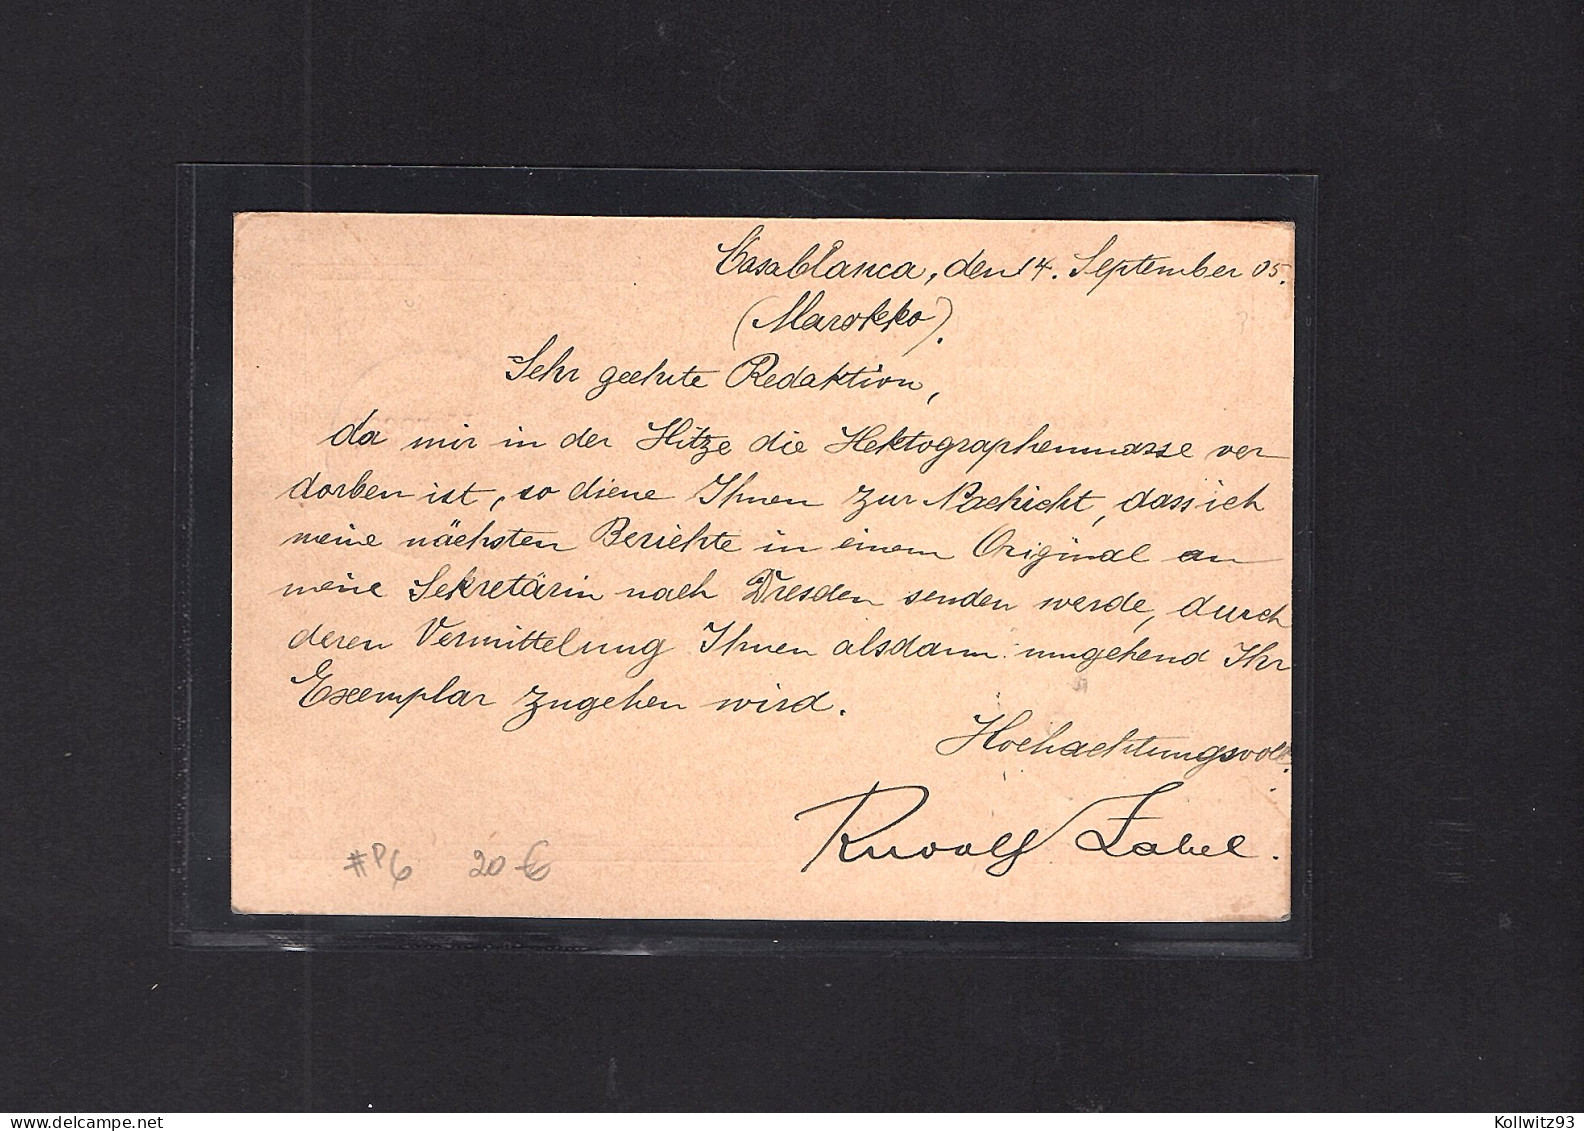 Casablanca, den 14. September 05.
(Marokko).
Sehr geehrte Redaktion,
da mir in der Hitze die Hektographenmasse ver
dorben ist, so diene Ihnen zur Nachicht, dass ich
meine nächsten Berichte in einem Original an
meine Sekretärin nach Dresden senden werde, durch
deren Vermittelung Ihnen alsdann umgehend Ihr
Exemplar zugehen wird.
Hochachtungsvoll
Rudolf Zabel.
#P6 20 €
www.delcampe.net
Kollwitz93